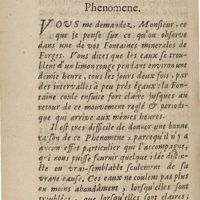 Phenomene.
VOUS me demandez, Monsieur, ce
que je pense sur ce qu'on observe
dans une de vos Fontaines minerales de
Forges. Vous dites que les eaux se trou-
blent d'un limon rouge pendant environ une
demie heure, tous les jours deux fois, par
des intervalles à peu près égaux & que la Fon-
taine coule ensuite fort claire jusques au
retour de ce mouvement reglé & periodi-
que qui arrive aux mêmes heures.
Il est tres-difficile de donner une bonne
raison de ce Phenomene, parce qu'il n'y a
aucun effet particulier qui l'accompagne,
qui nous puisse fournir quelque idée distin-
cte ou vrai-semblable seulement de sa
vraye cause. Ces eaux ne coulent pas plus
ou moins abondamment, lorsqu'elles sont
troublées, que lorsqu'elles sont claires;